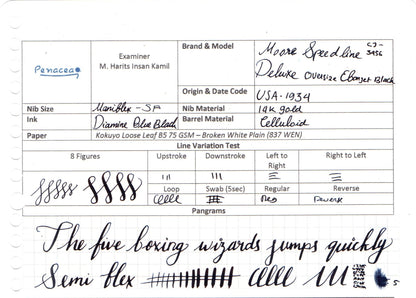 Penacea
Examiner
M. Harits Insan Kamil
Brand & Model
Moore Speedline
Deluxe Oversize Ebonset Black
Origin & Date Code
USA - 1934
Nib Size
Maniflex - SF
Nib Material
14K gold
Ink
Diamine Blue Black
Barrel Material
Celluloid
Paper
Kokuyo Loose Leaf B5 75 GSM – Broken White Plain (837 WEN)
Line Variation Test
8 Figures
Upstroke
Downstroke
Left to Right
Right to Left
Loop
Swab (5sec)
Regular
Reverse
Reg
Reverse
Pangrams
The five boxing wizards jumps quickly
Semi flex